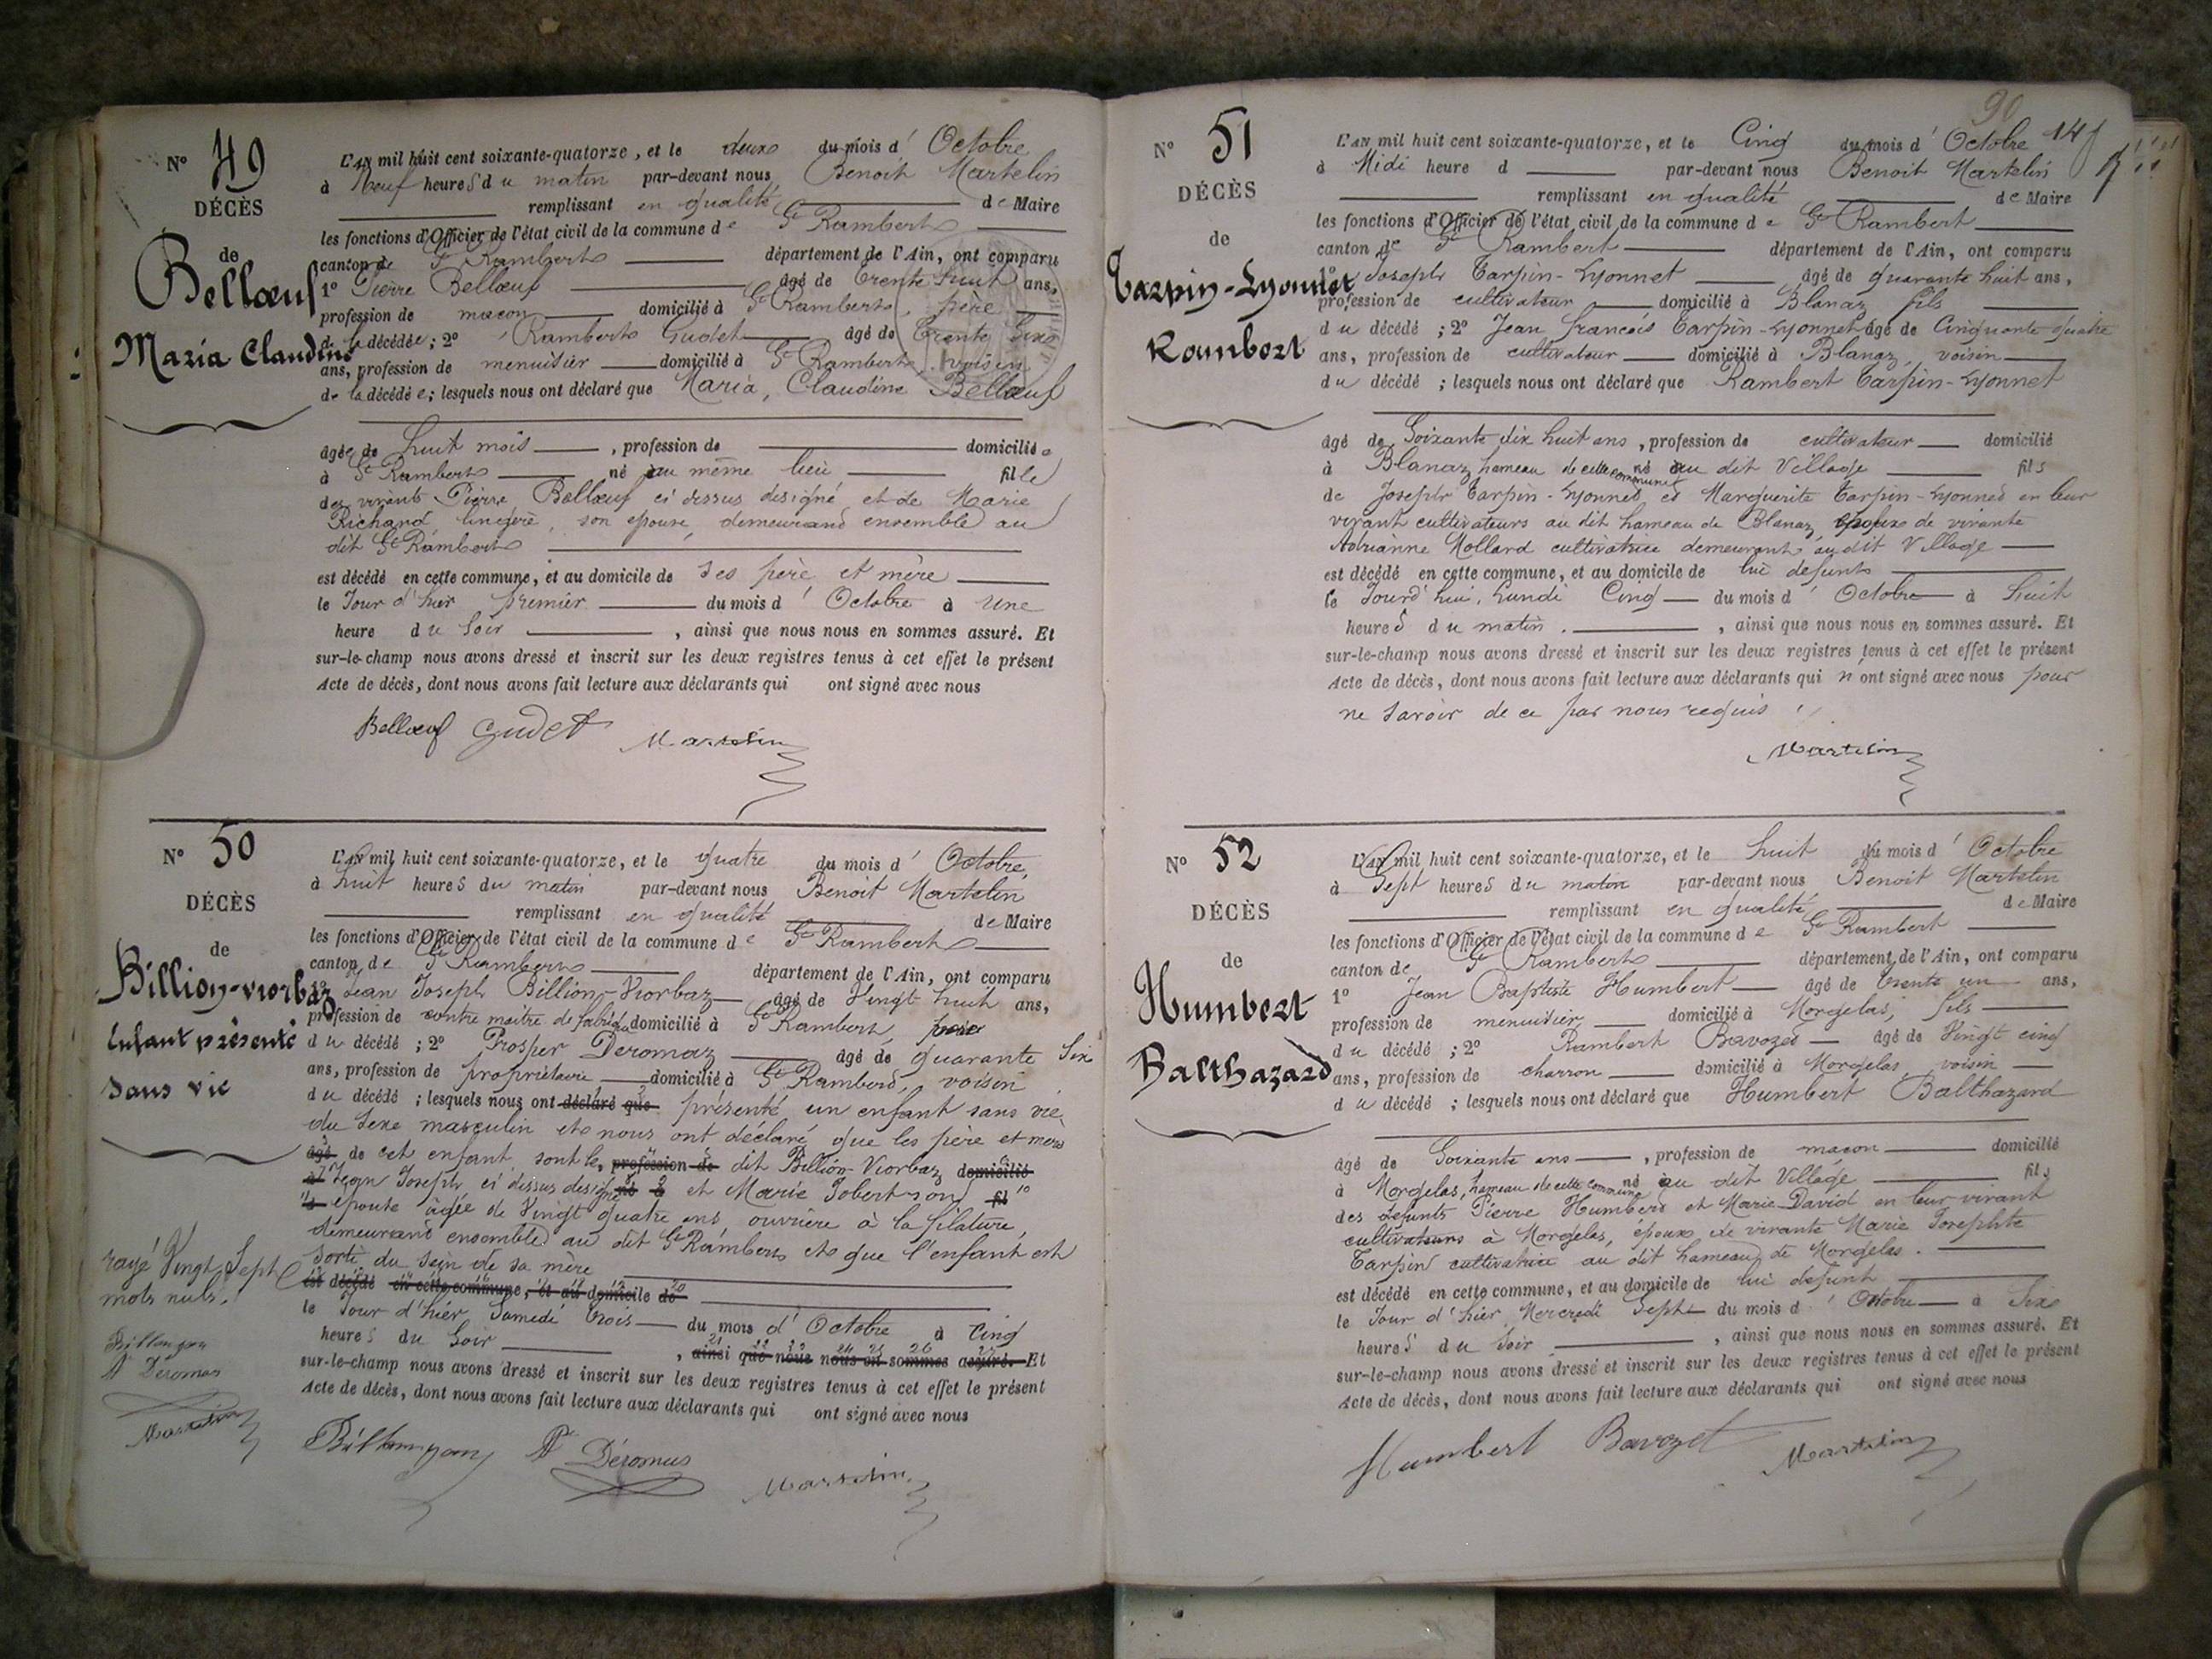 N° 49
DÉCÈS
de
Bellœuf
Maria Claudine
L'AN mil huit cent soixante-quatorze, et le deux du mois d' Octobre
à Neuf heures du matin par-devant nous Benoit Martelin
remplissant en qualité de Maire
les fonctions d'Officier de l'état civil de la commune de St Rambert
canton de St Rambert département de l'Ain, ont comparu
1° Pierre Bellœuf âgé de trente huit ans,
profession de maçon domicilié à St Rambert, père
de la décédée; 2° Rambert Gudet âgé de trente six
ans, profession de menuisier domicilié à St Rambert, voisin
de la décédée; lesquels nous ont déclaré que Maria, Claudine Bellœuf
âgée de huit mois, profession de domiciliée
à St Rambert né au même lieu fille
des vivants Pierre Bellœuf ci dessus designé et de Marie
Richand, lingère, son epouse, demeurand ensemble au
dit St Rambert
est décédé en cette commune, et au domicile de ses père et mère
le Jour d'hier premier du mois d' Octobre à Une
heure du Soir, ainsi que nous nous en sommes assuré. Et
sur-le-champ nous avons dressé et inscrit sur les deux registres tenus à cet effet le présent
Acte de décès, dont nous avons fait lecture aux déclarants qui ont signé avec nous
Bellœuf Gudet Martelin
N° 50
DÉCÈS
de
Billion-Viorbaz
Enfant présenté
sans vie
L'AN mil huit cent soixante-quatorze, et le quatre du mois d' Octobre,
à huit heures du matin par-devant nous Benoit Martelin
remplissant en qualité de Maire
les fonctions d'Officier de l'état civil de la commune de St Rambert
canton de St Rambert département de l'Ain, ont comparu
1° Jean Joseph Billion-Viorbaz âgé de Vingt huit ans,
profession de contre maitre de fabrique domicilié à St Rambert, père
du décédé; 2° Prosper Deromaz âgé de quarante Six
ans, profession de propriétaire domicilié à St Rambert, voisin
du décédé; lesquels nous ont déclaré que présenté un enfant sans vie
du sexe masculin et nous ont déclaré que les père et mère
âgé de cet enfant sont le, profession de dit Billion-Viorbaz domicilié
à Jean Joseph ci dessus designé né à et Marie Jobert son fil
de epouse âgée de Vingt quatre ans, ouvrière à la filature,
demeurant ensemble au dit St Rambert et que l'enfant est
sorti du sein de sa mère
est décédé en cette commune, et au domicile de
le Jour d'hier Samedi trois du mois d' Octobre à Cinq
heures du Soir, ainsi que nous nous en sommes assuré. Et
sur-le-champ nous avons dressé et inscrit sur les deux registres tenus à cet effet le présent
Acte de décès, dont nous avons fait lecture aux déclarants qui ont signé avec nous
rayé Vingt Sept
mots nuls.
P Déromas
Martelin
P Déromas
Martelin
90
N° 51
DÉCÈS
de
Tarpin-Lyonnet
Rambert
L'AN mil huit cent soixante-quatorze, et le Cinq du mois d' Octobre
à Midi heure d par-devant nous Benoit Martelin
remplissant en qualité de Maire
les fonctions d'Officier de l'état civil de la commune de St Rambert
canton de St Rambert département de l'Ain, ont comparu
1° Joseph Tarpin-Lyonnet âgé de quarante huit ans,
profession de cultivateur domicilié à Blanaz fils
du décédé; 2° Jean françois Tarpin-Lyonnet âgé de Cinquante quatre
ans, profession de cultivateur domicilié à Blanaz, voisin
du décédé; lesquels nous ont déclaré que Rambert Tarpin-Lyonnet
âgé de Soixante dix huit ans, profession de cultivateur domicilié
à Blanaz hameau de cette commune né au dit Village fils
de Joseph Tarpin-Lyonnet et Marguerite Tarpin-Lyonnet en leur
vivant cultivateurs au dit hameau de Blanaz, époux de vivante
Adrianne Mollard cultivatrice demeurant audit Village
est décédé en cette commune, et au domicile de lui defunt
le Jourd'hui, Lundi Cinq du mois d' Octobre à huit
heures du matin, ainsi que nous nous en sommes assuré. Et
sur-le-champ nous avons dressé et inscrit sur les deux registres tenus à cet effet le présent
Acte de décès, dont nous avons fait lecture aux déclarants qui n'ont signé avec nous pour
ne savoir de ce par nous requis.
Martelin
N° 52
DÉCÈS
de
Humbert
Balthazard
L'AN mil huit cent soixante-quatorze, et le huit du mois d' Octobre
à Sept heures du matin par-devant nous Benoit Martelin
remplissant en qualité de Maire
les fonctions d'Officier de l'état civil de la commune de St Rambert
canton de St Rambert département de l'Ain, ont comparu
1° Jean Baptiste Humbert âgé de trente un ans,
profession de menuisier domicilié à Morgelas, fils
du décédé; 2° Rambert Bavozet âgé de Vingt cinq
ans, profession de charron domicilié à Morgelas, voisin
du décédé; lesquels nous ont déclaré que Humbert Balthazard
âgé de Soixante ans, profession de maçon domicilié
à Morgelas, hameau de cette commune né au dit Village fils
des defunts Pierre Humbert et Marie David en leur vivant
cultivateurs à Morgelas, époux de vivante Marie Josephte
Tarpin cultivatrice au dit hameau de Morgelas.
est décédé en cette commune, et au domicile de lui defunt
le Jour d'hier Mercredi Sept du mois d' Octobre à Six
heures du Soir, ainsi que nous nous en sommes assuré. Et
sur-le-champ nous avons dressé et inscrit sur les deux registres tenus à cet effet le présent
Acte de décès, dont nous avons fait lecture aux déclarants qui ont signé avec nous
Humbert Bavozet Martelin